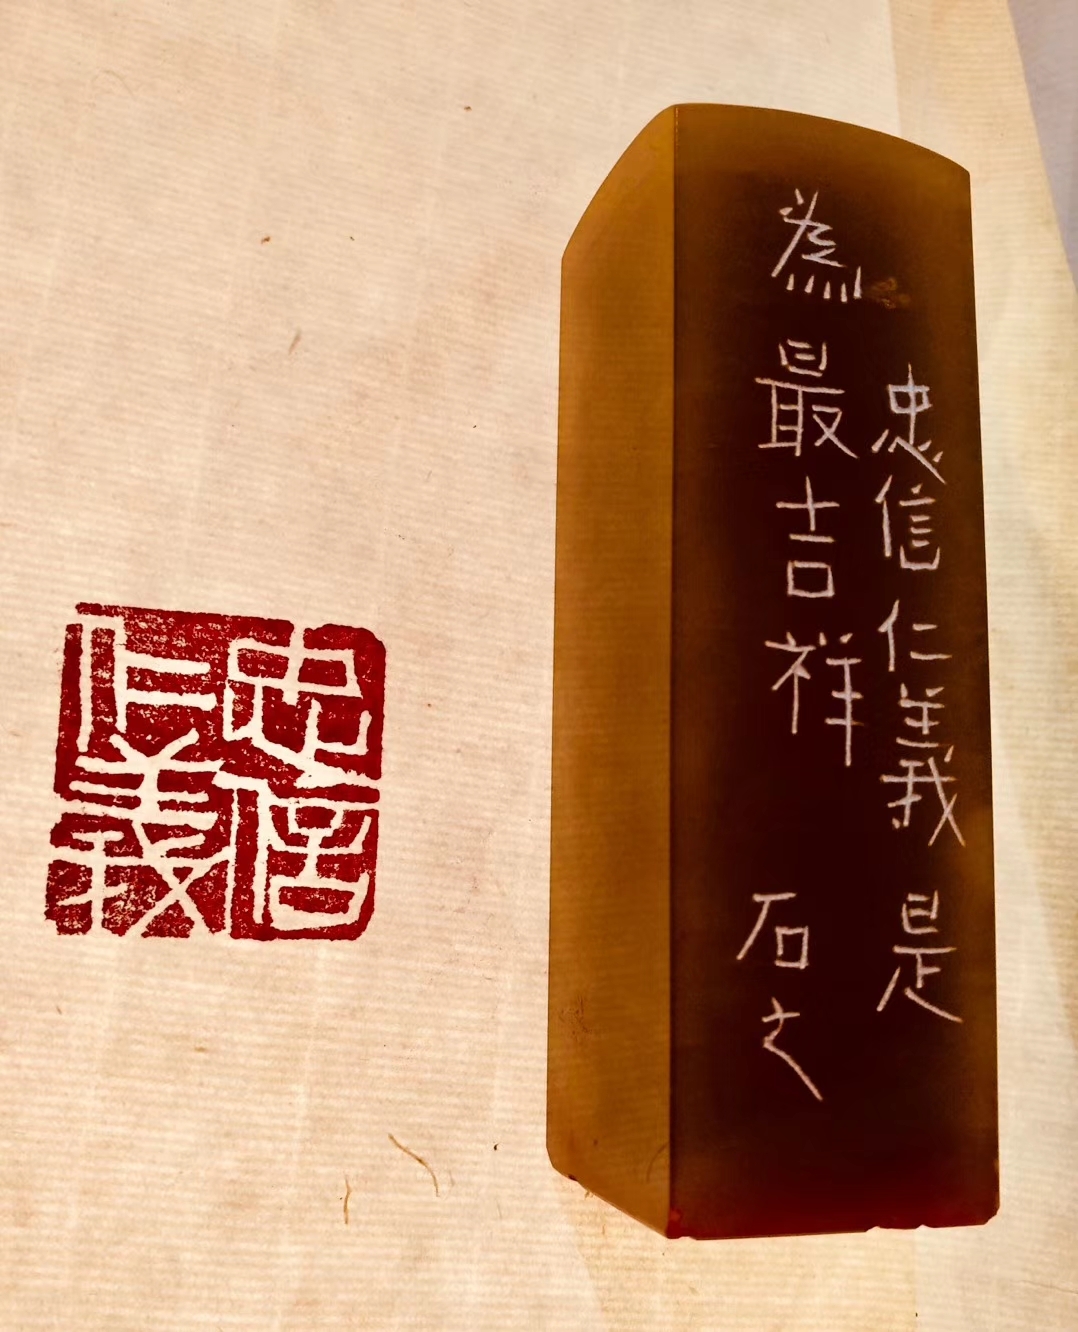 忠信
仁義
忠信仁義是
為最吉祥
石之